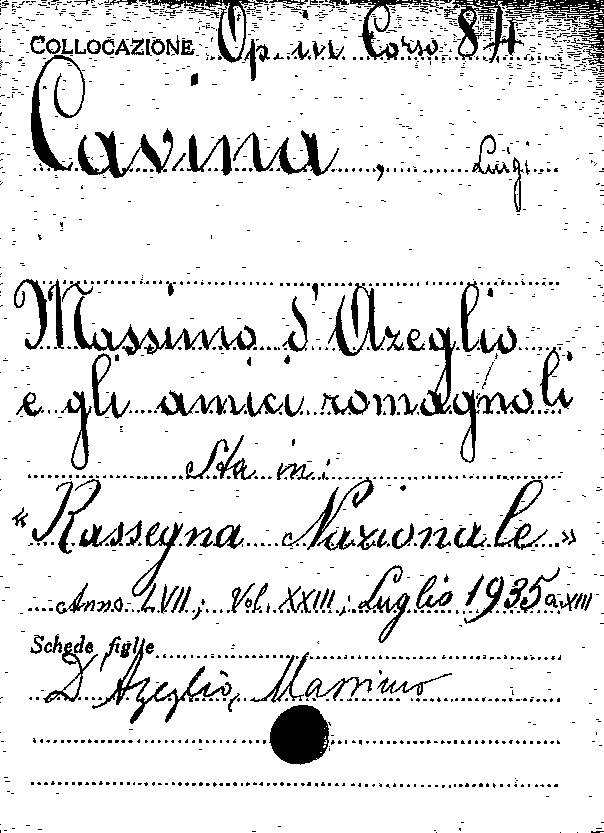 COLLOCAZIONE Op. in Corso 84
Cavina, Luigi
Massimo d'Azeglio
e gli amici romagnoli
Sta in:
«Rassegna Nazionale»
Anno LVII; Vol. XXIII; Luglio 1935 a. XIII
Schede figlie
D'Azeglio, Massimo